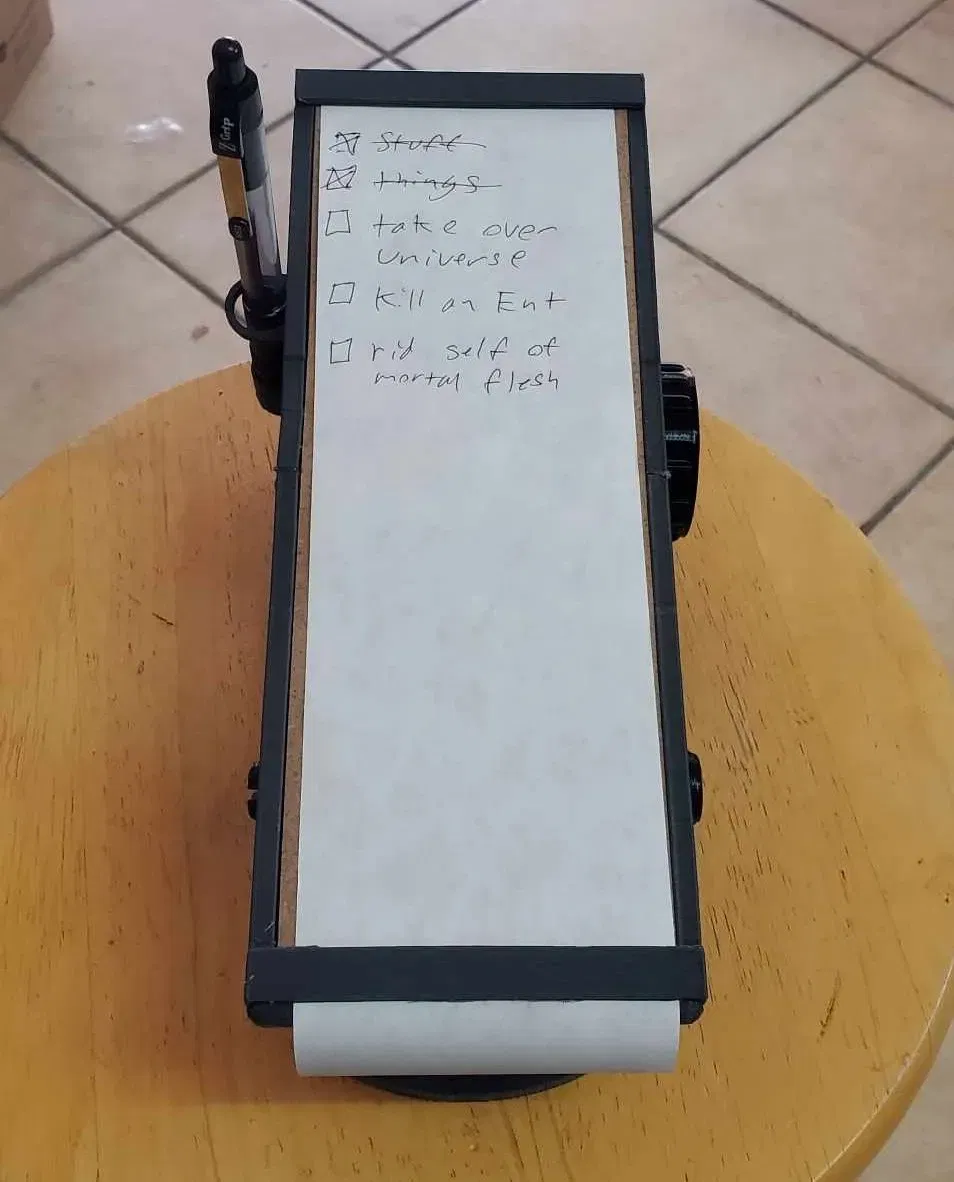 Z Grip
Stuff
things
take over
universe
Kill an Ent
rid self of
mortal flesh